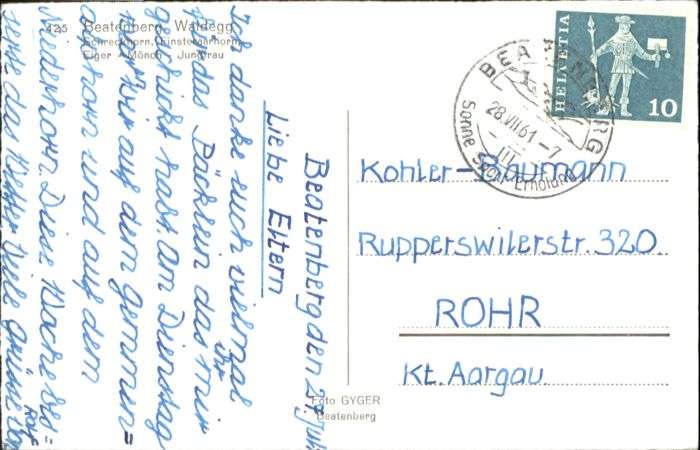 425 Beatenberg, Waldegg
Schreckhorn, Finsteraarhorn
Eiger - Mönch - Jungfrau
Beatenberg den 27. Juli
Liebe Eltern
Ich danke euch vielmal
für das Päcklein das mir ihr
geschickt habt am Dienstag
wir auf dem gemmen=
alphorn und auf dem
Niederhorn. Diese Woche bes=
serte das Wetter Viele Grüsse von
Rolf
HELVETIA
10
BEATENBERG
28.VII.61-7
Sonne Sport Erholung
Kohler-Baumann
Rupperswilerstr. 320.
ROHR
Kt. Aargau
Foto GYGER
Beatenberg